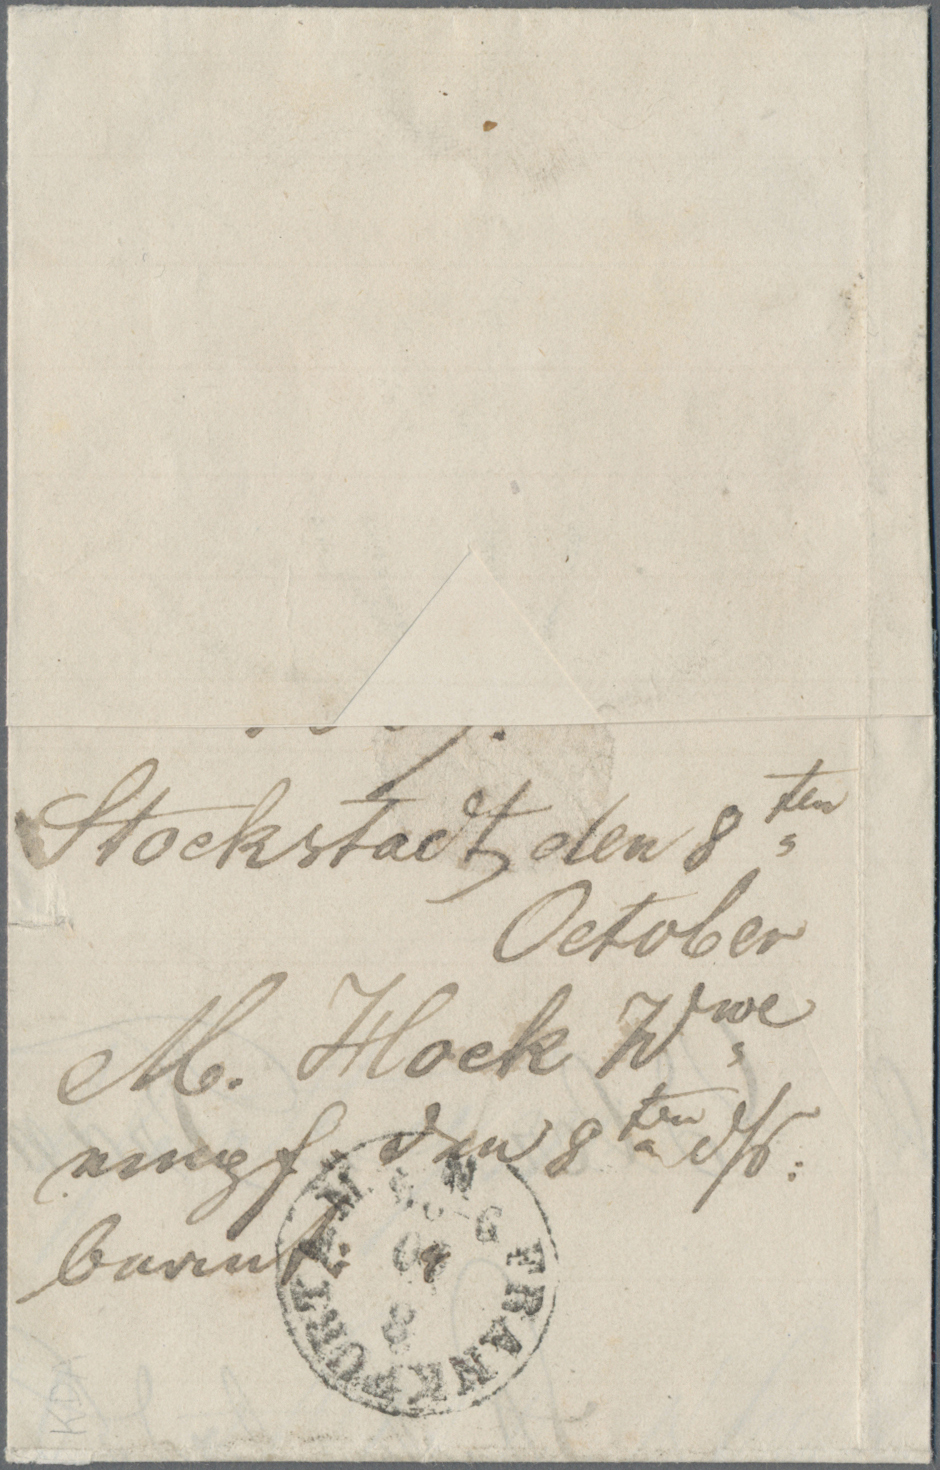 Stockstadt, den 8ten
October
M. Hock Wwe
empf den 8ten ds/:
beant:
FRANKFURT A. M.
8
KDA